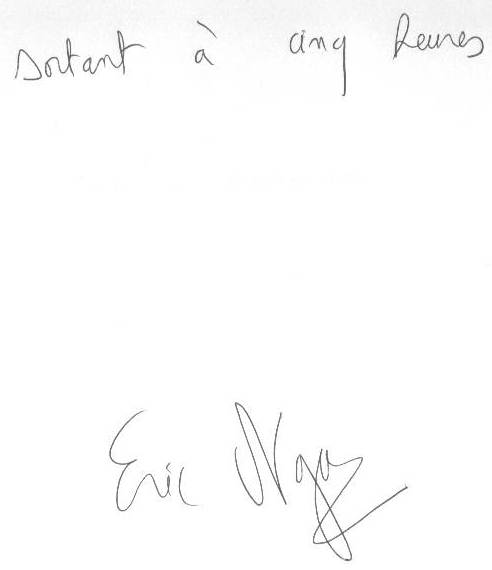 sortant à cinq heures
Eric